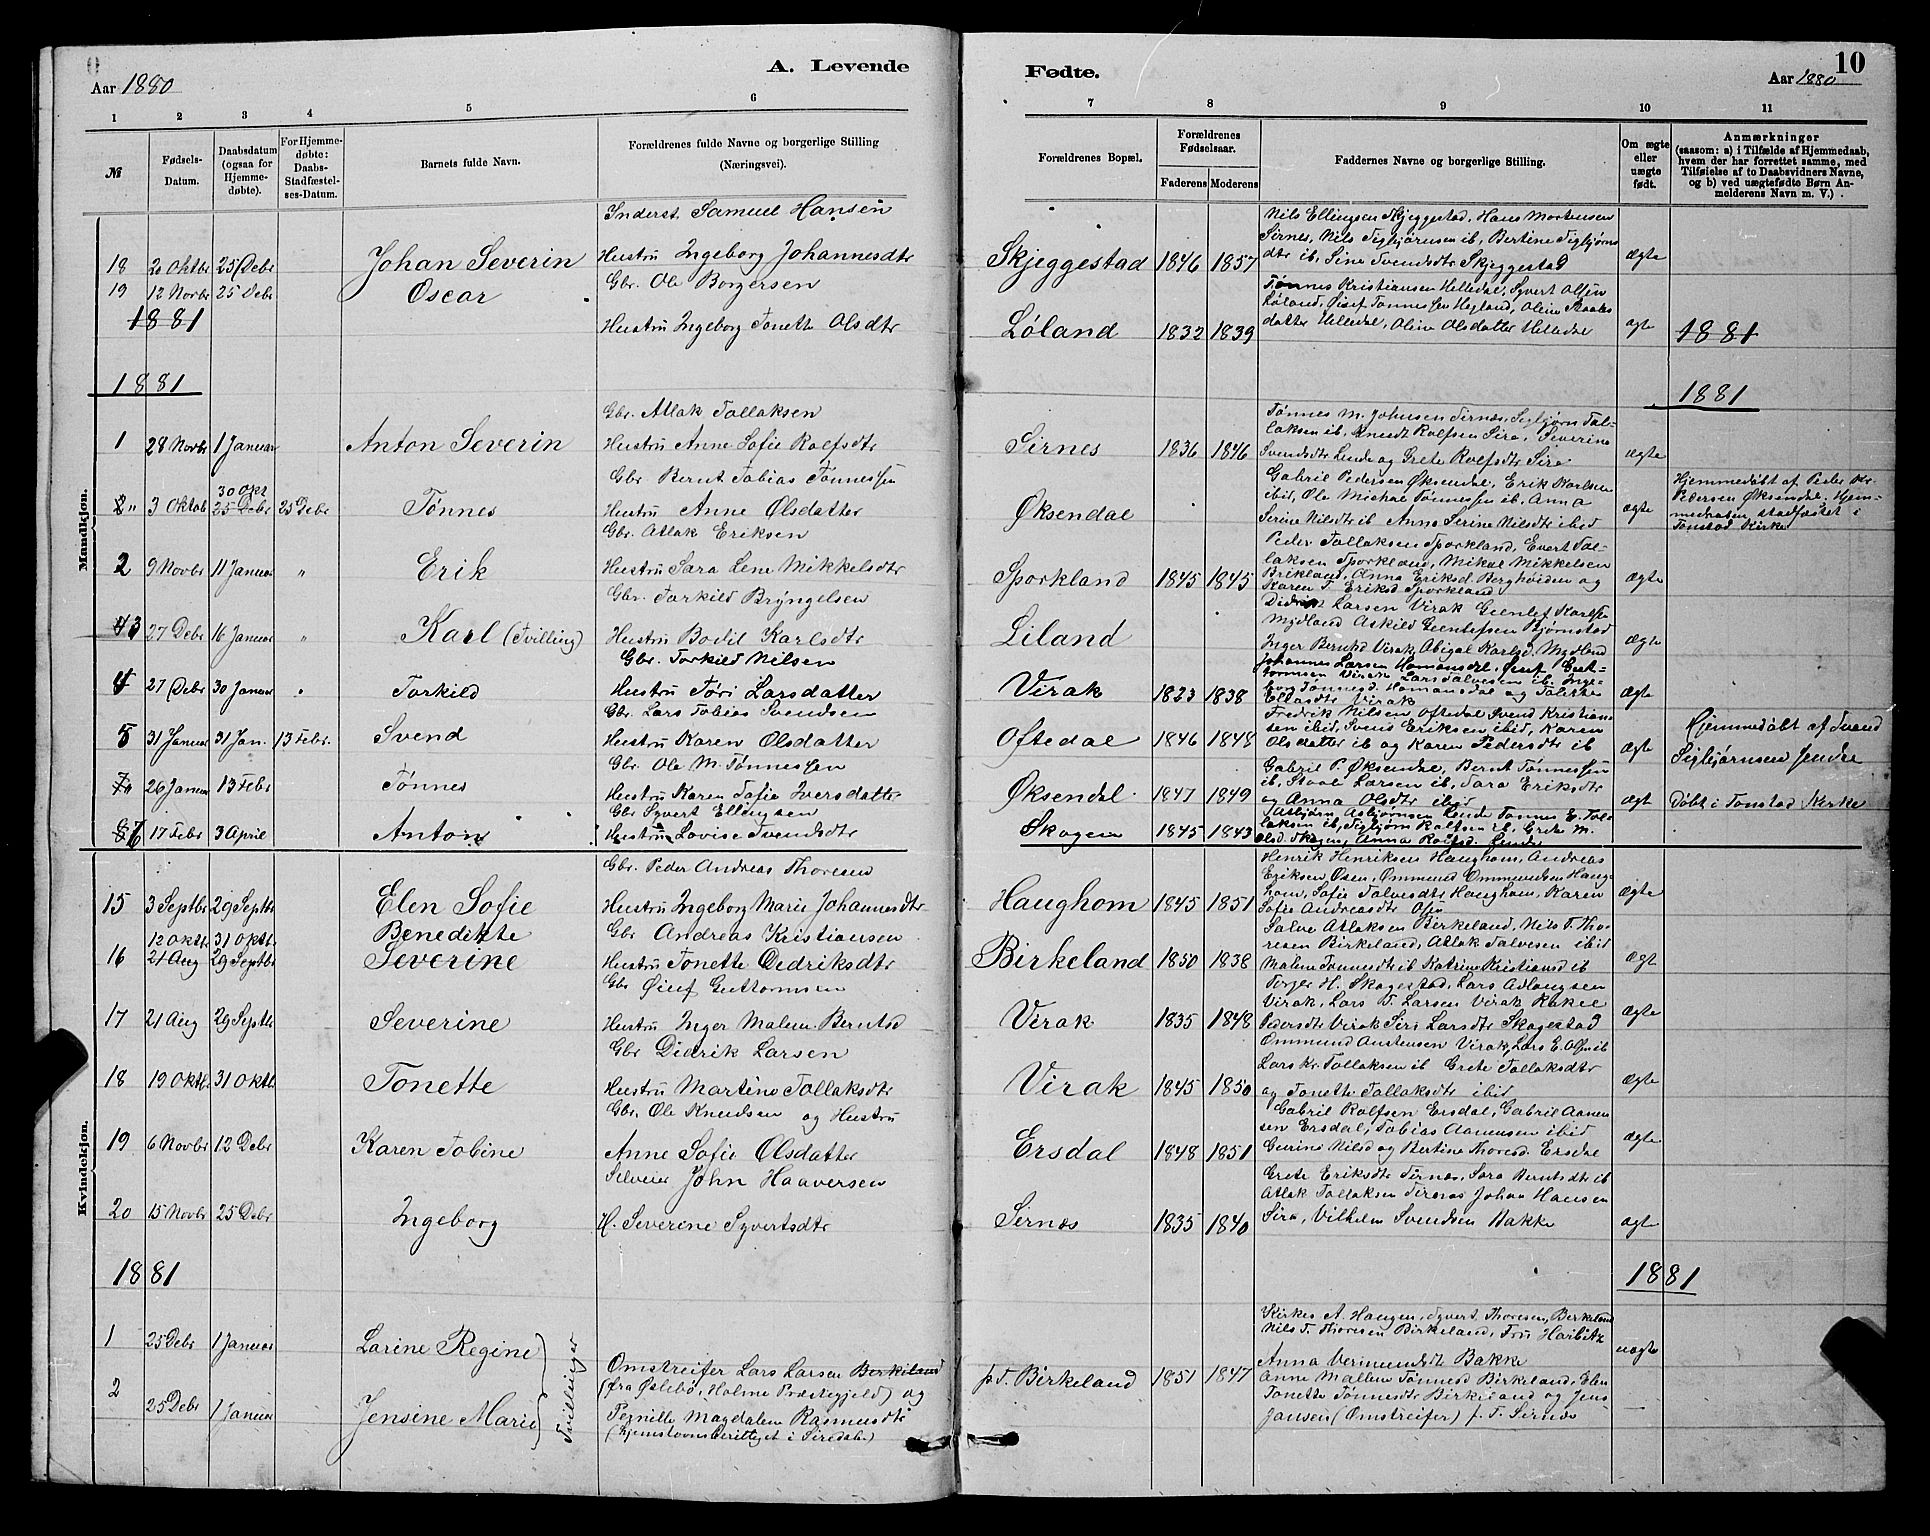 Aar 1880
A. Levende
1 2 3 4 5 6
№
Fødsels-Datum.
Daabsdatum (ogsaa for Hjemmedøbte).
For Hjemmedøbte: Daabs-Stadfæstelses-Datum.
Barnets fulde Navn.
Forældrenes fulde Navne og borgerlige Stilling
(Næringsvei).
Mandkjøn.
Inderst. Samuel Hansen
18 20 Oktbr 25 Debr Johan Severin Hustru Ingeborg Johannesdtr
19 12 Novbr 25 Debr Oscar Gbr. Ole Borgersen
1881 Hustru Ingeborg Tonette Olsdtr
1881
Gbr. Atlak Tollaksen
1 28 Novbr 1 Januar Anton Severin Hustru Anne Sofie Rolfsdtr
Gbr. Bernt Tobias Tønnessen
30 Okt
2 " 3 Oktob 25 Debr 25 Debr Tønnes Hustru Anne Olsdatter
Gbr. Atlak Eriksen
2 9 Novbr 11 Januar " Erik Hustru Sara Lene Mikkelsdtr
Gbr. Torkild Bryngelsen
3 27 Debr 16 Januar " Karl (Tvilling) Hustru Bodil Karlsdtr
Gbr. Torkild Nilsen
4 27 Debr 30 Januar " Torkild Hustru Tøri Larsdatter
Gbr. Lars Tobias Svendsen
5 31 Januar 31 Jan. 13 Febr. Svend Hustru Karen Olsdatter
Gbr. Ole M. Tønnessen
26 Januar 13 Febr Tønnes Hustru Karen Sofie Iversdatter
Gbr Syvert Ellingsen
17 Febr 3 April Anton Hustru Lovise Svendsdtr
Kvindekjøn.
Gbr. Peder Andreas Thoresen
15 3 Septbr 29 Septbr Elen Sofie Hustru Ingeborg Marie Johannesdtr
12 Oktbr 31 Oktbr Benedikte Gbr Andreas Kristiansen
16 21 Aug 29 Septbr Severine Hustru Tonette Dedriksdtr
Gbr Øief Guttormsen
17 21 Aug 29 Septbr Severine Hustru Inger Malene Berntsd
Gbr Didrik Larsen
18 19 Oktb. 31 Oktb. Tonette Hustru Martine Tollaksdtr
Gbr. Ole Knudsen og Hustru
19 6 Novbr 12 Debr Karen Tobine Anne Sofie Olsdatter
John Haaversen
20 15 Novbr 25 Debr Ingeborg H. Severine Syvertsdtr
1881
1 25 Debr 1 Januar Larine Regine
Tvillinger
Omstreifer Lars Larsen Berkeland
2 (fra Øslebø, Holme Præstegjeld) og
25 Debr 1 Januar Jensine Marie Pernille Magdalene Rasmusdtr
(hjemstavnsberettiget i Siredalen)
Fødte.
10
Aar 1880
7 8 9 10 11
Forældrenes Bopæl.
Forældrenes Fødselsaar.
Faderens Moderens
Faddernes Navne og borgerlige Stilling.
Om ægte eller uægte født.
Anmærkninger
(saasom: a) i Tilfælde af Hjemmedaab, hvem der har forrettet samme, med Tilføielse af to Daabsvidners Navne, og b) ved uægtefødte Børn Anmelderens Navn m. V.)
Nils Ellingsen Skjeggestad, Hans Mortensen
Sirnes, Nils Sigbjørnsen ib, Bertine Sigbjørns
Skjeggestad 1846 1857 dtr ib, Sine Svendsdtr Skjeggestad Ægte
Tønnes Kristiansen Helledal, Syvert Olsen
Løland, Øisef Tønnessen Hegland, Oline
Løland 1832 1839 datter Helledal, Oline Olsdatter Helledal Ægte 1881
1881
Tønnes M. Johnsen Sirnes, Sigbjørn Tol-
Sirnes 1836 1846 laksen ib, Knudt Rolfsen Sira, Severine
Svendsdtr Lende og Grete Rolfsdtr Sira Ægte
Gabriel Pedersen Øksendal, Erik Karlsen
ibid, Ole Michal Tønnessen ib, Anna
Øksendal Serine Nilsdtr ib Anna Serine Nilsdtr ibid Ægte
Hjemmedøbt af Peder Kr.
Pedersen Øksendal. Hjem-
medaaben stadfæstet i
Tonstad Kirke
Peder Tollaksen Sporkland, Evert Tol-
laksen Sporkland, Mikal Mikkelsen
Sporkland 1845 1845 Birkland, Anna Eriksd Berghøiden og Ægte
Karen T. Eriksd Sporkland
Didrik Larsen Virak Gunlef Karlsen
Liland Mydland Askild Gunlefsen Bjørnstad Ægte
Inger Berntsd Virak, Abigal Karlsd. Mydland
Johannes Larsen Homansdal, Øiuf Gut-
tormsen Virak Lars Salvesen ib. Inge-
Virak 1823 1838 borg Tønnesd. Homansdal og Ægte
Eliasdtr Virak
Fredrik Nilsen Oftedal Svend Kristian
Oftedal 1846 1848 sen ibid, Svend Eriksen ibid, Karen
Olsdatter ib og Karen Pedersdtr ib Ægte
Hjemmedøbt af Svend
Sigbjørnsen Jendal
Gabril P. Øksendal, Bernt Tønnessen
Øksendal 1847 1849 ib, Staale Larsen ib, Sara Eriksdtr
og Anna Olsdtr ibid Ægt Døbt i Tonstad Kirke
Asbjørn Asbjørnsen Lende Tønnes E. Tol-
Skogen 1845 1843 laksen ib, Sigbjørn Rolfsen ib, Grete M.
Olsd. Skogen, Anna Rolfsd. Lende
Henrik Henriksen Haughom, Andreas
Eriksen Osen, Ommund Ommundsen Haug-
Haughom 1845 1851 hom, Sofie Salvesdtr Haughom, Karen Ægte
Sofie Andreasdtr Osen
Salve Atlaksen Birkeland, Nils T. Tho-
resen Birkeland, Atlak Salvesen ibid
Birkeland 1850 1838 Malene Tønnesdtr ib Katrine Kristiansd ib Ægt
Torger H. Skagestad, Lars Adlaugsen
Virak, Lars T. Larsen Virak Rakel
Virak 1835 1848 Pedersdtr Virak Siri Larsdtr Skagestad Ægte
Ommund Austensen Virak, Lars E. Olsen ib
Lars Kr. Tollaksen ib Grete Tollaksdtr
Virak 1845 1850 og Tonette Tollaksdtr ibid Ægte
Gabriel Rolfsen Ersdal, Gabril Aanen
sen Ersdal, Tobias Aanensen ibid
Ersdal 1848 1851 Gurine Nilsd og Bertine Thoresd. Ersdal Ægte
Grete Eriksdtr Sirnes, Sara Berntsdtr ib
Atlak Tollaksen Sirnes Johan Hansen
Sirnes 1835 1840 Sira, Vilhelm Svendsen Bakke Ægte
1881
Kirkes. A. Haugen, Syvert Thoresen Birkeland
Nils T. Thoresen Birkeland, Fru Harbitz uægte
Anna Vermundsdtr Bakke
p.T. Birkeland 1851 1847 Anne Mallene Tønnesd Birkeland, Elen
Tonette Tønnesdtr Birkeland og Jens —
Jansen (Omstreifer) p. T. Sirnes